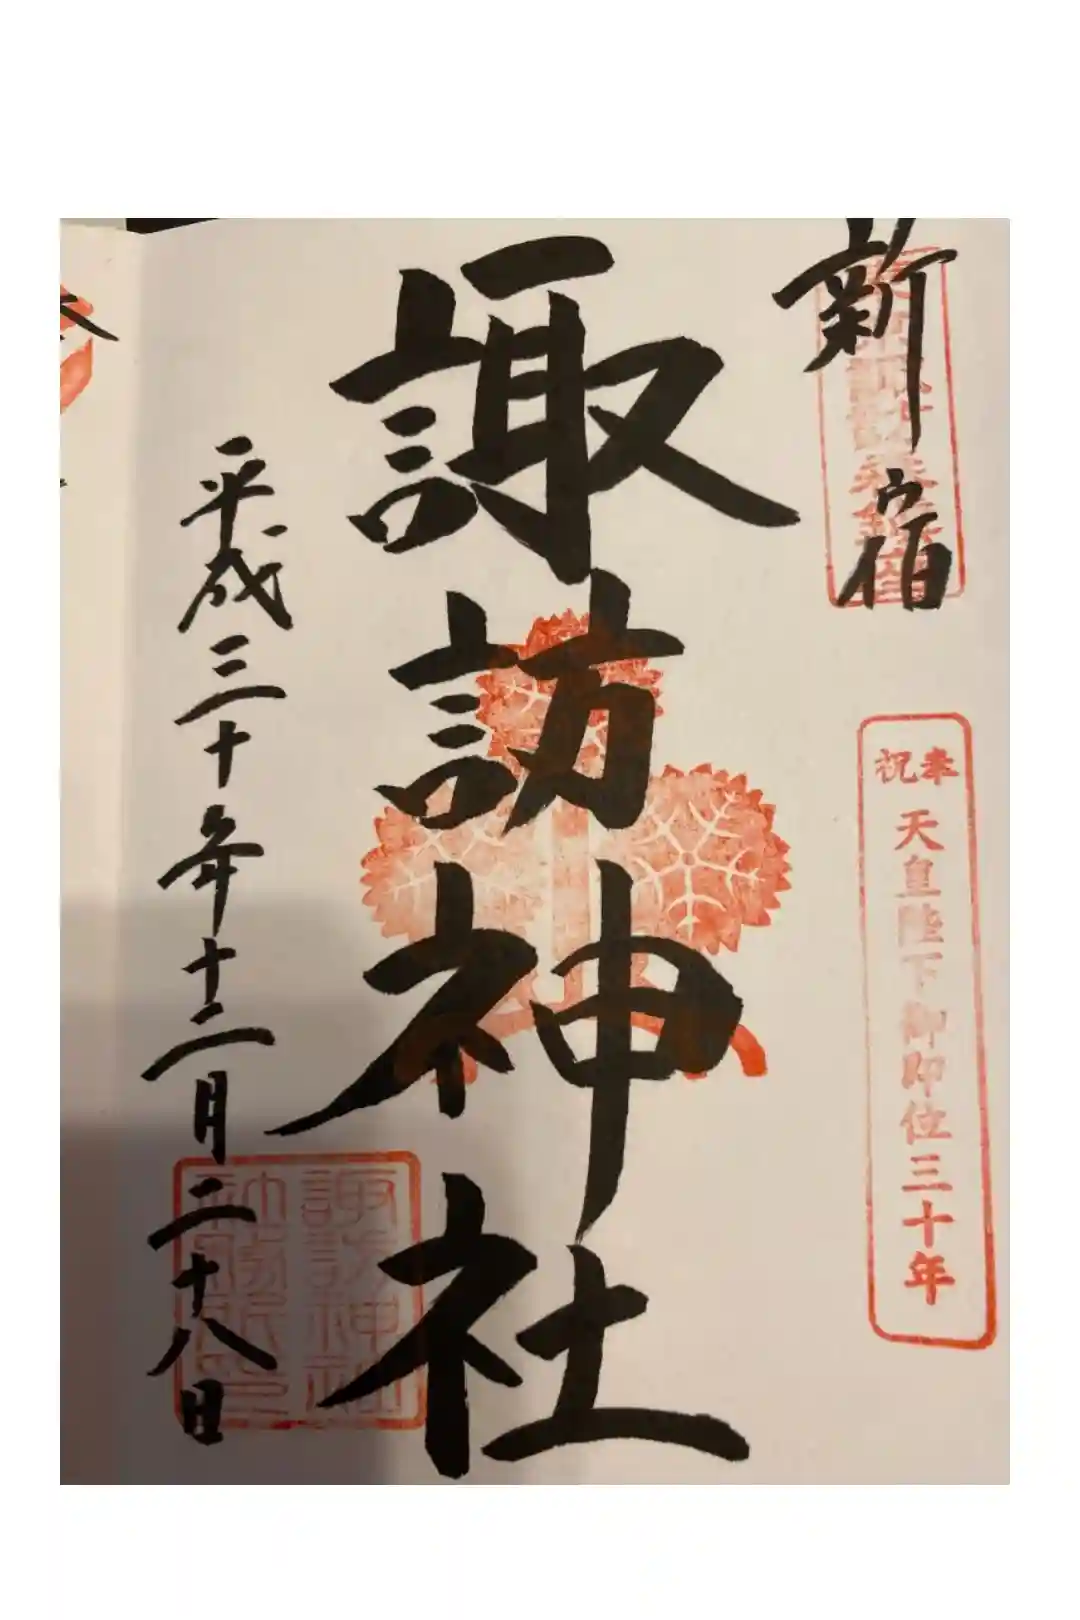 新宿
奉祝
天皇陛下御即位三十年
諏訪神社
諏訪神社
平成三十年十二月二十八日